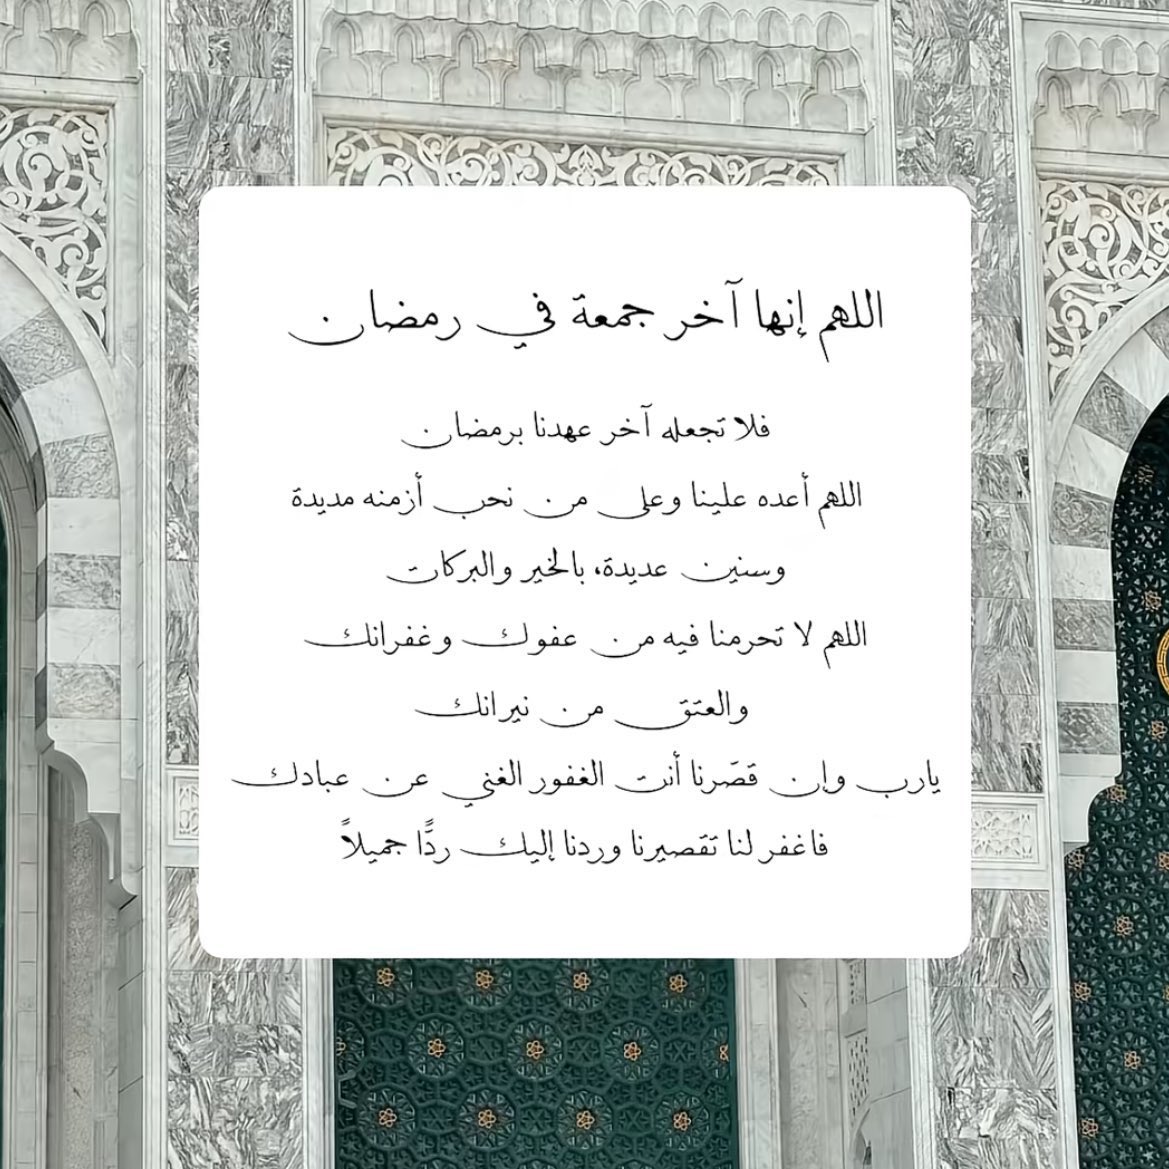 اللهم إنها آخر جمعة في رمضان
فلا تجعله آخر عهدنا برمضان
اللهم أعده علينا وعلى من نحب أزمنه مديدة
وسنين عديدة، بالخير والبركات
اللهم لا تحرمنا فيه من عفوك وغفرانك
والعتق من نيرانك
يارب وإن قصَرنا أنت الغفور الغني عن عبادك
فاغفر لنا تقصيرنا وردنا إليك ردًّا جميلاً